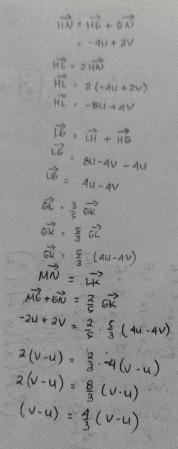 HN = HG + GN
= -4u + 2v
HL = 2 HN
HL = 2 (-4u + 2v)
HL = -8u + 4v
LG = LH + HG
LG = 8u - 4v - 4u
LG = 4u - 4v
GL = 3/5 GK
GK = 5/3 GL
GK = 5/3 (4u - 4v)
MN = LK
MG + GN = 2/5 GK
-2u + 2v = 2/5 · 5/3 (4u - 4v)
2(v - u) = 2/3 · -4(v - u)
2(v - u) = 8/3 (v - u)
(v - u) = 4/3 (v - u)